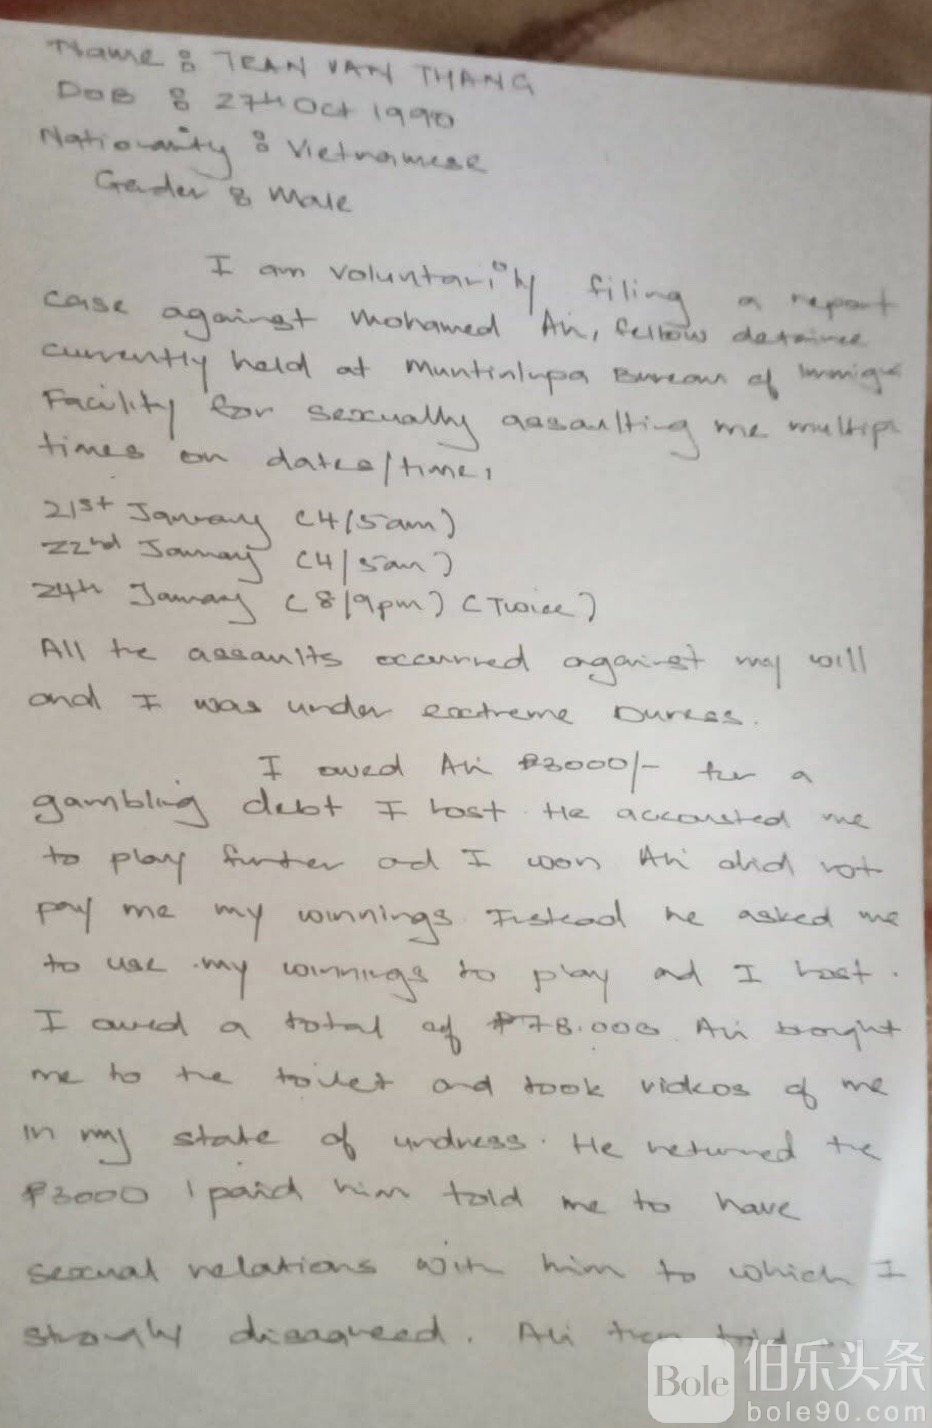 Name : TRAN VAN THANG
DOB : 27th Oct 1990
Nationality : Vietnamese
Gender : Male
I am voluntarily filing a report
case against Mohamed Ali, fellow detainee
currently held at Muntinlupa Bureau of Immigra
Facility for sexually assaulting me multipl
times on dates/time,
21st January (4/5am)
22nd January (4/5am)
24th January (8/9pm) (Twice)
All the assaults occurred against my will
and I was under extreme Duress.
I owed Ali ₱3000/- for a
gambling debt I lost. He me
to play further and I won Ali did not
pay me my winnings. Instead he asked me
to use my winnings to play and I lost.
I owed a total of ₱78.000. Ali brought
me to the toilet and took videos of me
in my state of undress. He returned the
₱3000 I paid him told me to have
sexual relations with him to which I
strongly disagreed. Ali then told
Bole 伯乐头条
bole90.com